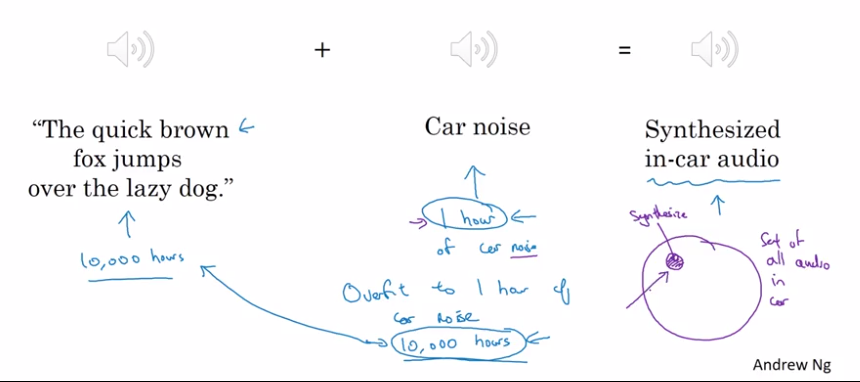 +
=
“The quick brown
fox jumps
over the lazy dog.”
10,000 hours
Car noise
1 hour
of car noise
Overfit to 1 hour of
car noise
10,000 hours
Synthesized
in-car audio
Synthesize
Set of
all audio
in
car
Andrew Ng